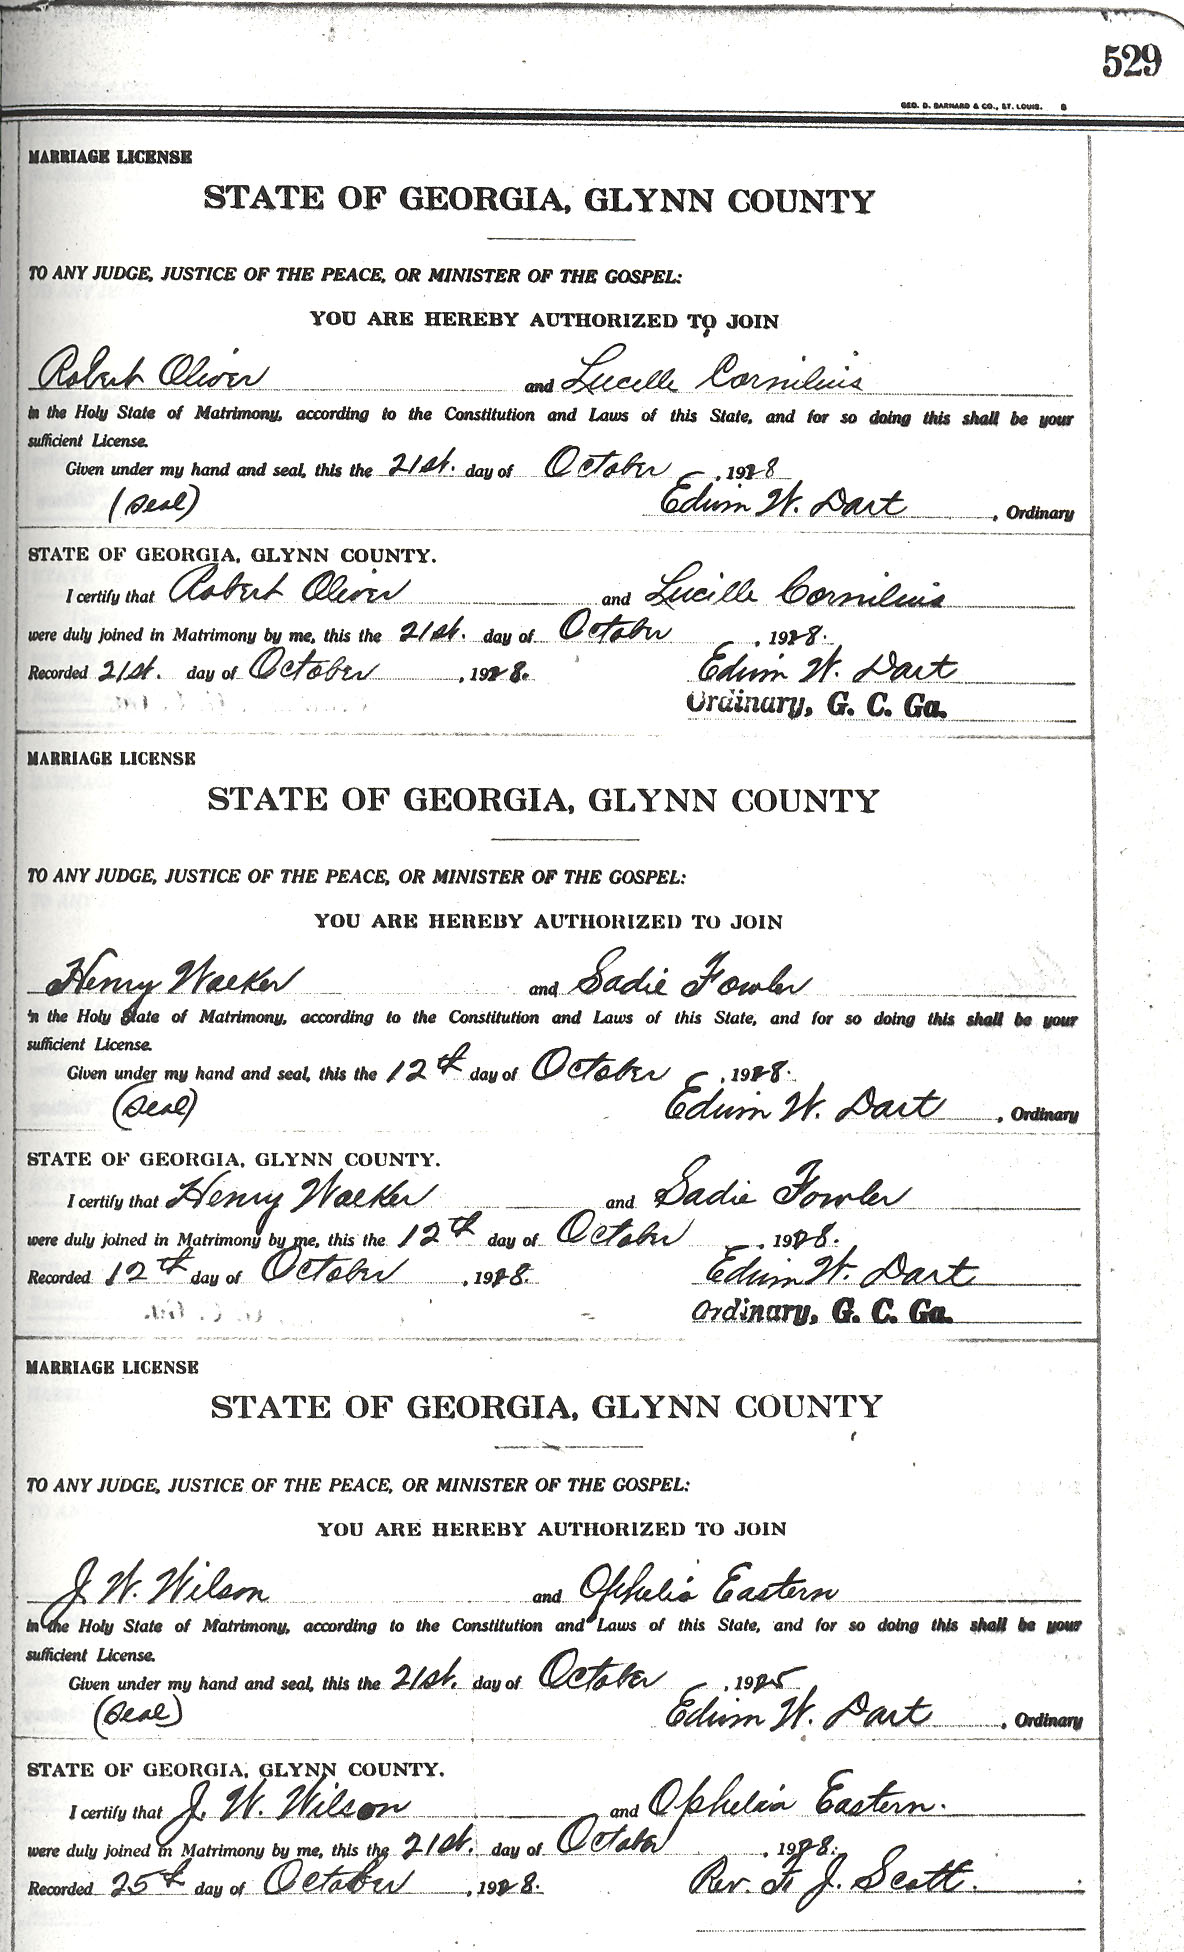 529
GEO. D. BARNARD & CO., ST. LOUIS. B
MARRIAGE LICENSE
STATE OF GEORGIA, GLYNN COUNTY
TO ANY JUDGE, JUSTICE OF THE PEACE, OR MINISTER OF THE GOSPEL:
YOU ARE HEREBY AUTHORIZED TO JOIN
Robert Oliver and Lucelle Cornilius
in the Holy State of Matrimony, according to the Constitution and Laws of this State, and for so doing this shall be your
sufficient License.
Given under my hand and seal, this the 21st. day of October, 1928
(Seal) Edwin W. Dart, Ordinary
STATE OF GEORGIA, GLYNN COUNTY.
I certify that Robert Oliver and Lucille Cornilius
were duly joined in Matrimony by me, this the 21st. day of October, 1928.
Recorded 21st. day of October, 1928. Edwin W. Dart
Ordinary, G. C. Ga.
MARRIAGE LICENSE
STATE OF GEORGIA, GLYNN COUNTY
TO ANY JUDGE, JUSTICE OF THE PEACE, OR MINISTER OF THE GOSPEL:
YOU ARE HEREBY AUTHORIZED TO JOIN
Henry Walker and Sadie Fowler
in the Holy State of Matrimony, according to the Constitution and Laws of this State, and for so doing this shall be your
sufficient License.
Given under my hand and seal, this the 12th day of October, 1928.
(Seal) Edwin W. Dart, Ordinary
STATE OF GEORGIA, GLYNN COUNTY.
I certify that Henry Walker and Sadie Fowler
were duly joined in Matrimony by me, this the 12th day of October, 1928.
Recorded 12th day of October, 1928. Edwin W. Dart
Ordinary, G. C. Ga.
MARRIAGE LICENSE
STATE OF GEORGIA, GLYNN COUNTY
TO ANY JUDGE, JUSTICE OF THE PEACE, OR MINISTER OF THE GOSPEL:
YOU ARE HEREBY AUTHORIZED TO JOIN
J. W. Wilson and Ophelia Eastern
in the Holy State of Matrimony, according to the Constitution and Laws of this State, and for so doing this shall be your
sufficient License.
Given under my hand and seal, this the 21st. day of October, 1925
(Seal) Edwin W. Dart, Ordinary
STATE OF GEORGIA, GLYNN COUNTY.
I certify that J. W. Wilson and Ophelia Eastern.
were duly joined in Matrimony by me, this the 21st. day of October, 1928.
Recorded 25th day of October, 1928. Rev. F. J. Scott.